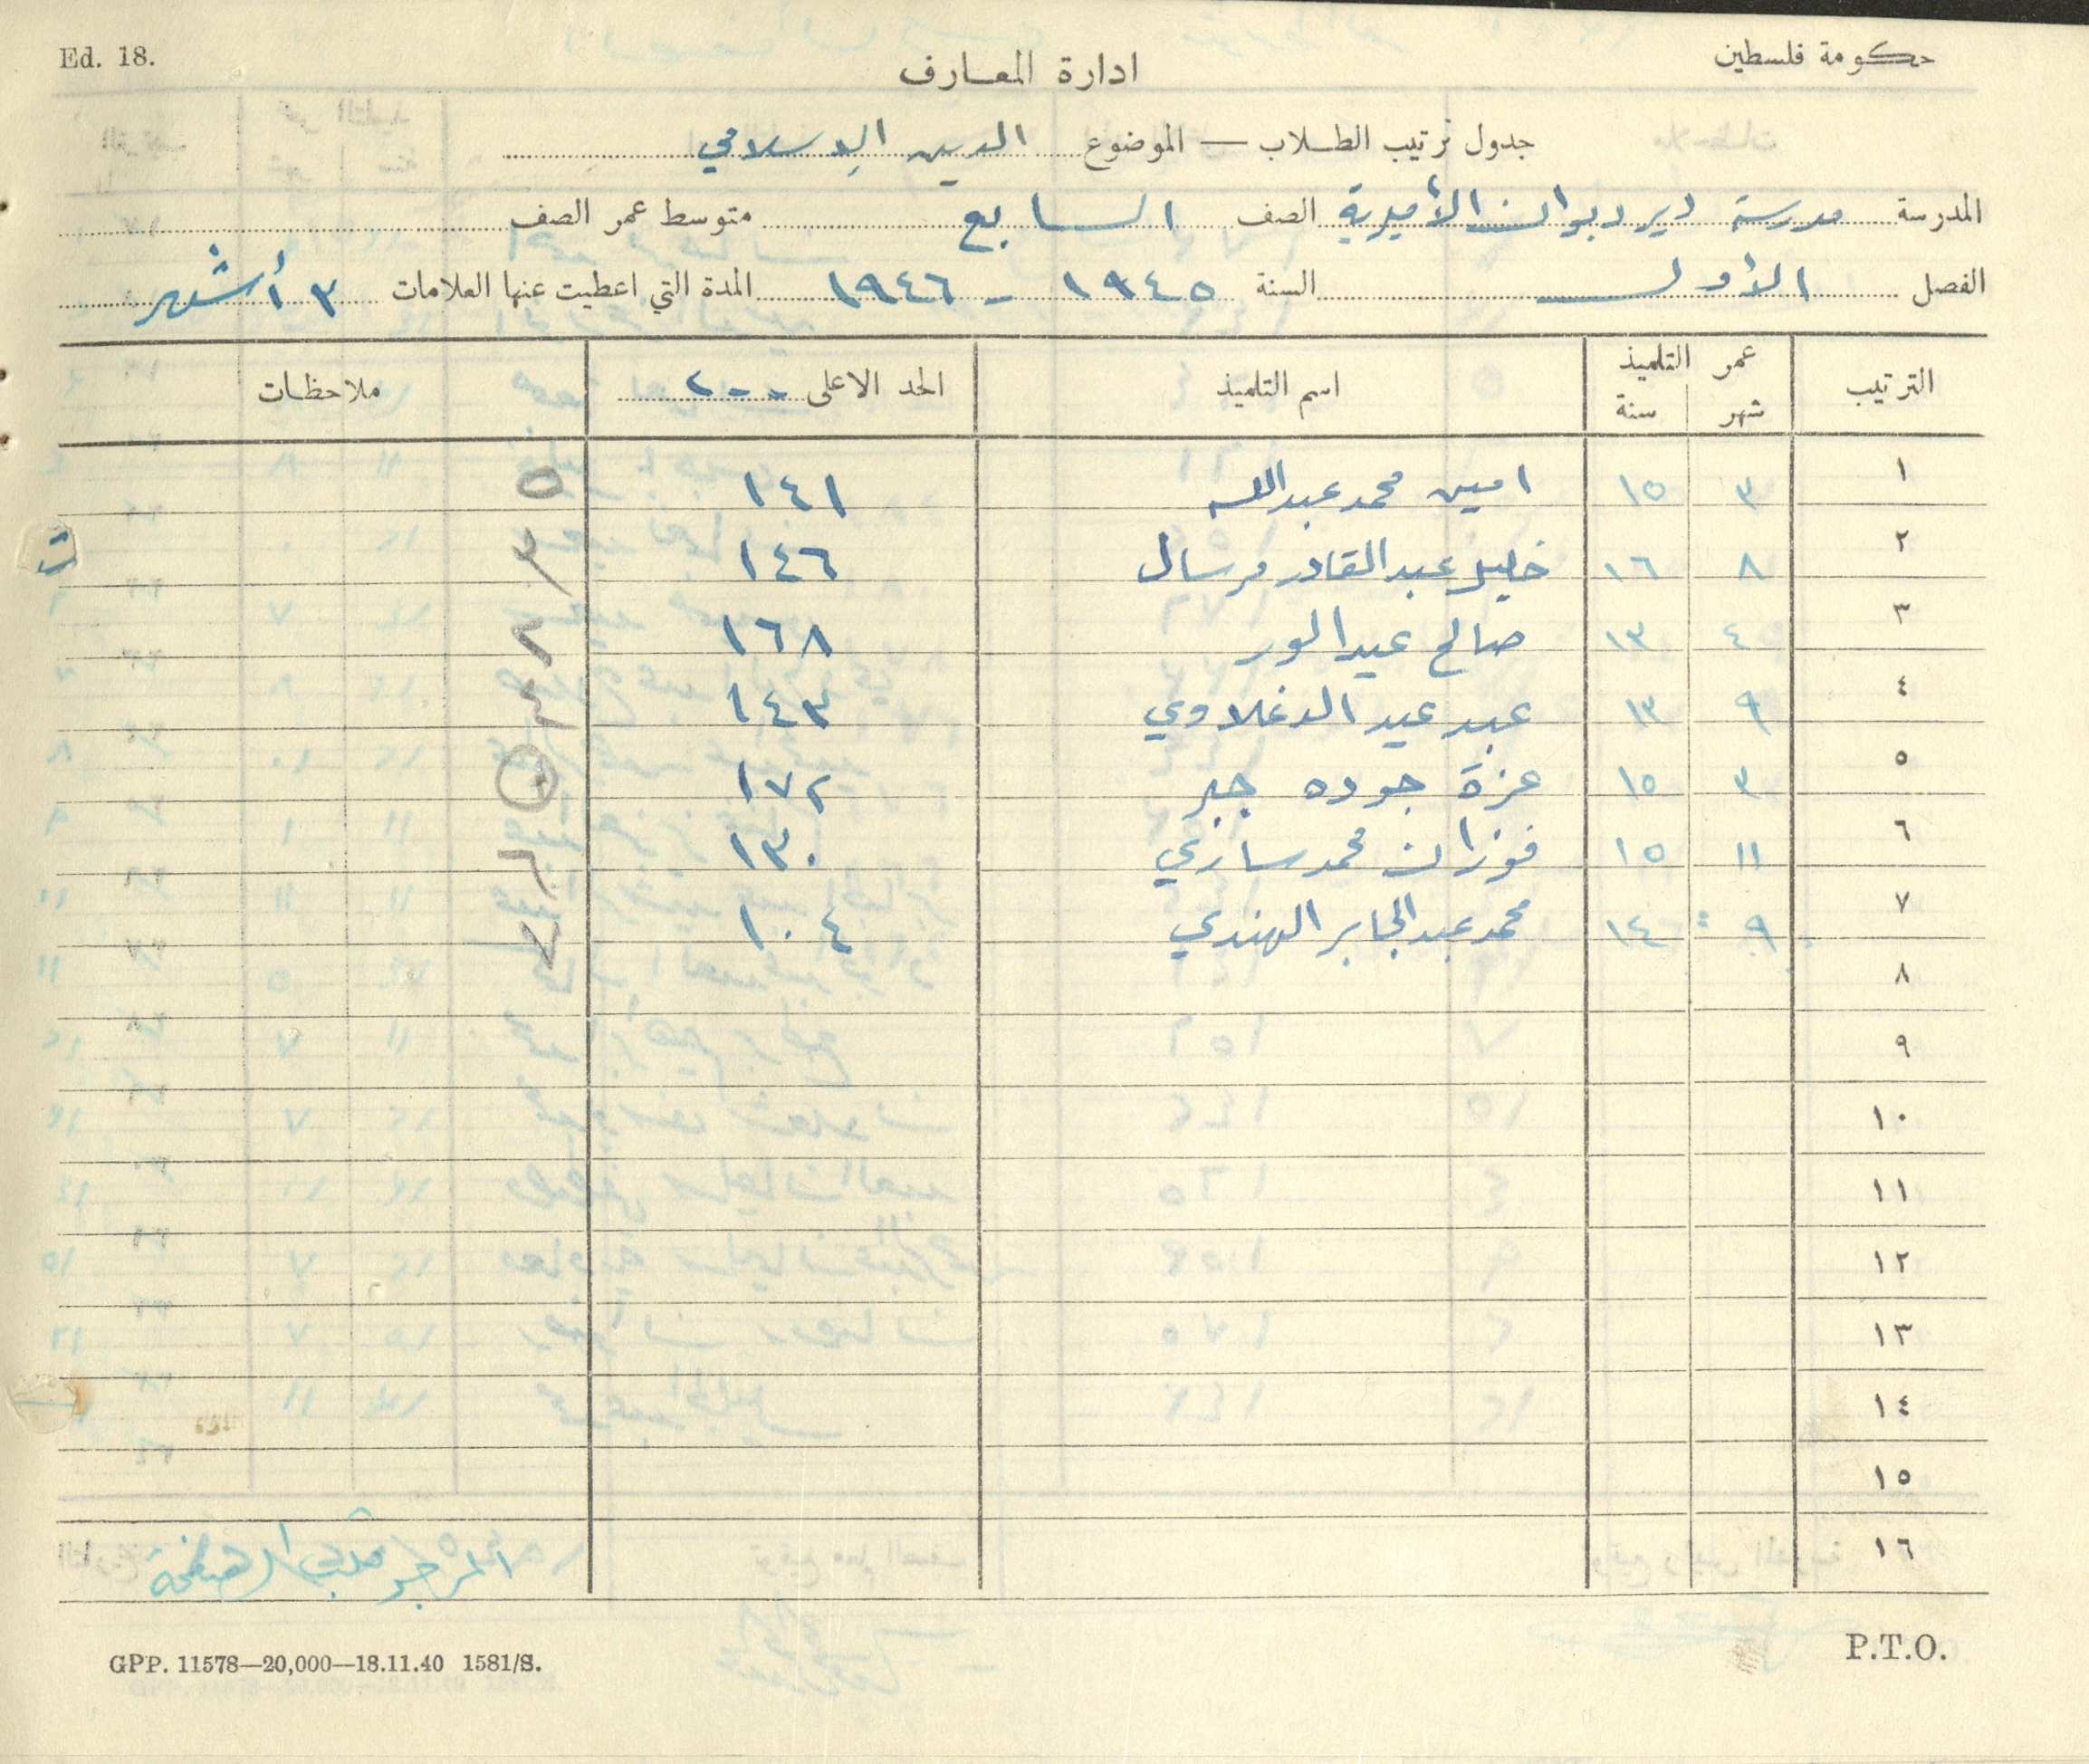 Ed. 18.
حكومة فلسطين
ادارة المعارف
جدول ترتيب الطلاب — الموضوع الدين الإسلامي
المدرسة مدرسة دير ديوان الأميرية الصف السابع متوسط عمر الصف
الفصل الأول السنة ١٩٤٥ - ١٩٤٦ المدة التي اعطيت عنها العلامات ٣ أشهر
الترتيب عمر التلميذ شهر سنة اسم التلميذ الحد الاعلى ٢٠٠ ملاحظات
١ ٣ ١٥ امين محمد عبدالله ١٤١ ٥
٢ ٨ ١٦ خليل عبد القادر مرسال ١٤٦ ٣
٣ ٤ ١٣ صالح عيد الور ١٦٨ ٢
٤ ٩ ١٣ عبد عيد الدغلاوي ١٤٣ ٤
٥ ٣ ١٥ عزة جوده جبر ١٧٢ ١
٦ ١١ ١٥ فوزان محمد ١٣٠ ٦
٧ ٩ ١٤ محمد عبد الجابر الهندي ١٠٤ ٧
٨
٩
١٠
١١
١٢
١٣
١٤
١٥
١٦
المرجو قلب الصفحة
GPP. 11578—20,000—18.11.40 1581/S.
P.T.O.